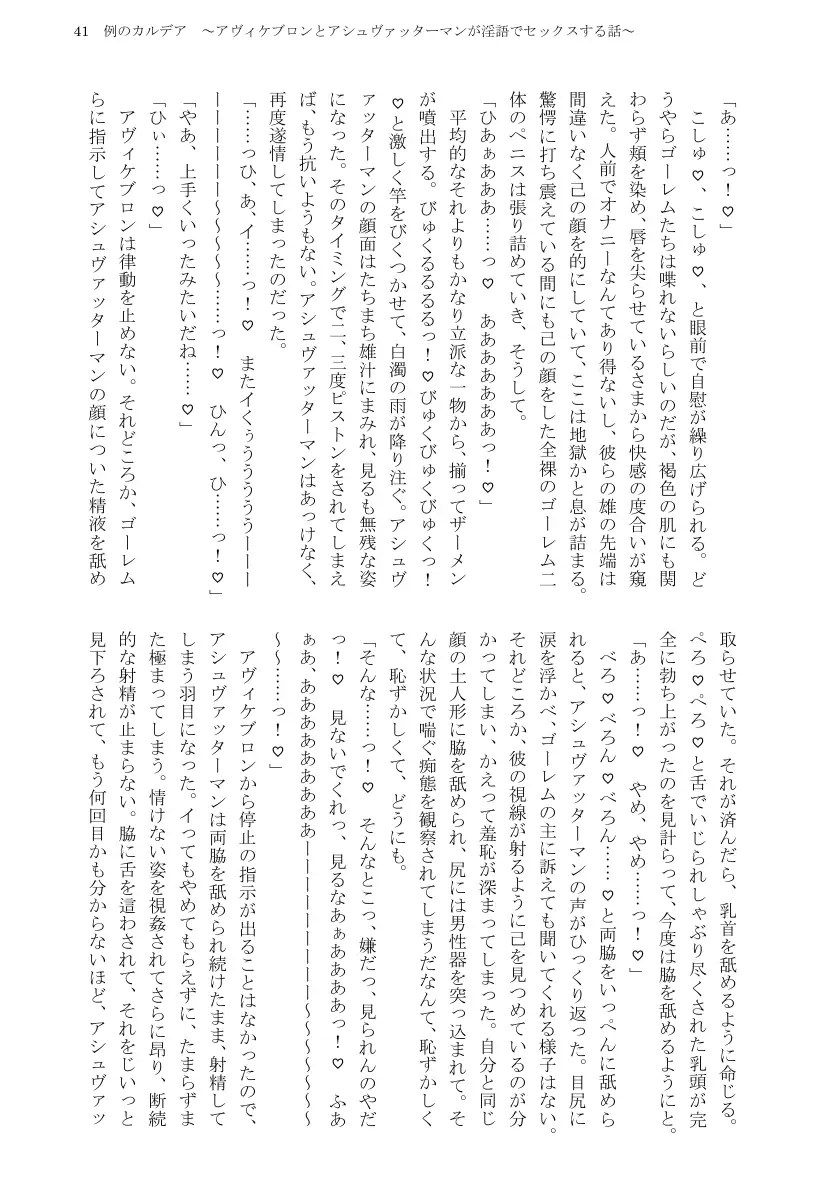 41　例のカルデア　～アヴィケブロンとアシュヴァッターマンが淫語でセックスする話～
「あ……っ！♡」
　こしゅ♡、こしゅ♡、と眼前で自慰が繰り広げられる。ど
うやらゴーレムたちは喋れないらしいのだが、褐色の肌にも関
わらず頬を染め、唇を尖らせているさまから快感の度合いが窺
えた。人前でオナニーなんてあり得ないし、彼らの雄の先端は
間違いなく己の顔を的にしていて、ここは地獄かと息が詰まる。
驚愕に打ち震えている間にも己の顔をした全裸のゴーレム二
体のペニスは張り詰めていき、そうして。
「ひあぁあああ……っ♡　あああああああっ！♡」
　平均的なそれよりもかなり立派な一物から、揃ってザーメン
が噴出する。びゅくるるるるっ！♡びゅくびゅくびゅくっ！
♡と激しく竿をびくつかせて、白濁の雨が降り注ぐ。アシュヴ
ァッターマンの顔面はたちまち雄汁にまみれ、見るも無残な姿
になった。そのタイミングで二、三度ピストンをされてしまえ
ば、もう抗いようもない。アシュヴァッターマンはあっけなく、
再度遂情してしまったのだった。
「……っひ、あ、イ……っ！♡　またイくぅうううううーーー
ーーーーーー～～～～～……っ！♡　ひんっ、ひ……っ！♡」
「やあ、上手くいったみたいだね……♡」
「ひぃ……っ♡」
　アヴィケブロンは律動を止めない。それどころか、ゴーレム
らに指示してアシュヴァッターマンの顔についた精液を舐め
取らせていた。それが済んだら、乳首を舐めるように命じる。
ぺろ♡ぺろ♡と舌でいじられしゃぶり尽くされた乳頭が完
全に勃ち上がったのを見計らって、今度は脇を舐めるようにと。
「あ……っ！♡　やめ、やめ……っ！♡」
　べろ♡べろん♡べろん……♡と両脇をいっぺんに舐めら
れると、アシュヴァッターマンの声がひっくり返った。目尻に
涙を浮かべ、ゴーレムの主に訴えても聞いてくれる様子はない。
それどころか、彼の視線が射るように己を見つめているのが分
かってしまい、かえって羞恥が深まってしまった。自分と同じ
顔の土人形に脇を舐められ、尻には男性器を突っ込まれて。そ
んな状況で喘ぐ痴態を観察されてしまうだなんて、恥ずかしく
て、恥ずかしくて、どうにも。
「そんな……っ！♡　そんなとこっ、嫌だっ、見られんのやだ
っ！♡　見ないでくれっ、見るなあぁああああっ！♡　ふあ
ぁあ、あああああああああーーーーーーーーー～～～～～～
～～……っ！♡」
　アヴィケブロンから停止の指示が出ることはなかったので、
アシュヴァッターマンは両脇を舐められ続けたまま、射精して
しまう羽目になった。イってもやめてもらえずに、たまらずま
た極まってしまう。情けない姿を視姦されてさらに昂り、断続
的な射精が止まらない。脇に舌を這わされて、それをじいっと
見下ろされて、もう何回目かも分からないほど、アシュヴァッ